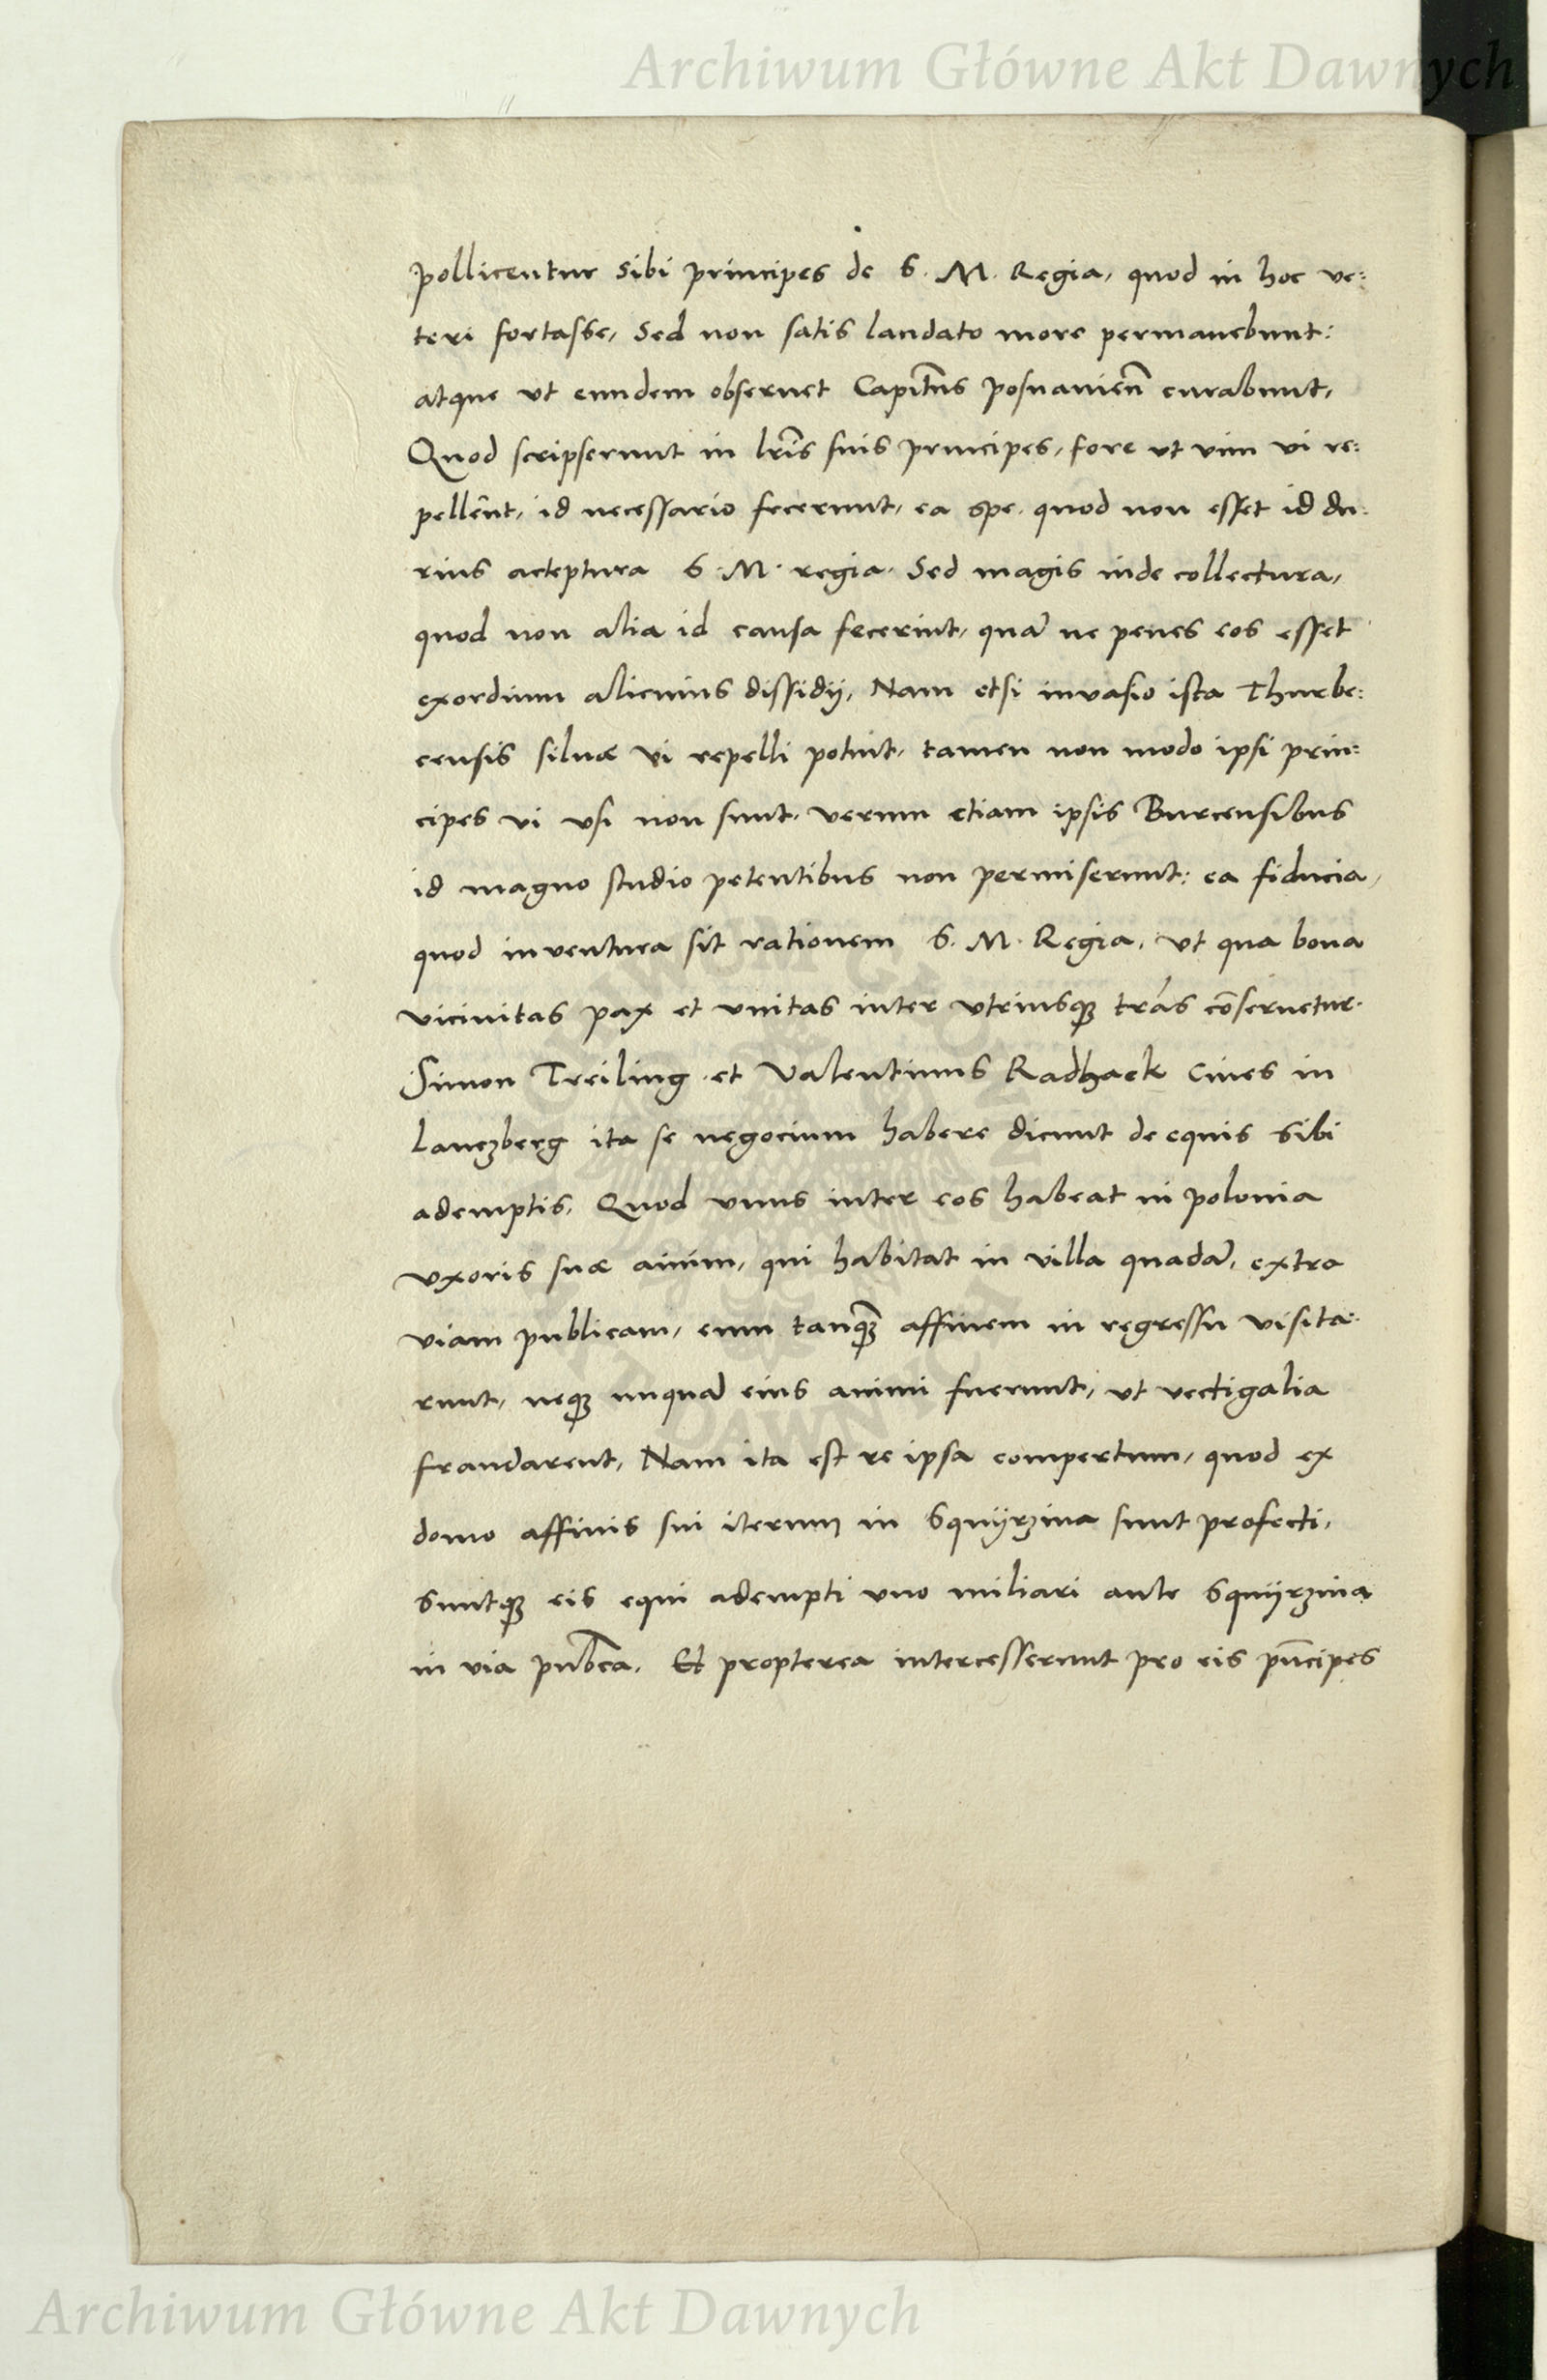 Archiwum Główne Akt Dawnych
pollicentur sibi principes de S. M. Regia, quod in hoc ve:
teri fortasse, Sed non satis laudato more permanebunt:
atque ut eundem observet Capitn̄s posnanien̄ curabunt,
Quod scripserunt in lr̄is suis principes, fore ut vim vi re:
pellēnt, id necessario fecerunt, ea spe, quod non esset id du:
rius acceptura S. M. regia. Sed magis inde collectura,
quod non alia id causa fecerint, quā ne penes eos esset
exordium alicuius dissidij, Nam etsi invasio ista Thurbe:
censis silvæ vi repelli potuit, tamen non modo ipsi prin:
cipes vi usi non sunt, verum etiam ipsis Burcensibus
id magno studio petentibus non permiserunt: ea fiducia,
quod inventura sit rationem S. M. Regia, ut qua bona
vicinitas pax et unitas inter utriusq; tr̄as cōservetur.
Simon Treiling et Valentinus Radhack cives in
Lanczberg ita se negocium habere dicunt de equis sibi
ademptis, Quod unus inter eos habeat in polonia
uxoris suæ avum, qui habitat in villa quadā, extra
viam publicam, eum tanq̄ affinem in regressu visita:
runt, neq; unquā eius animi fuerunt, ut vectigalia
fraudarent, Nam ita est re ipsa compertum, quod ex
domo affinis sui iterum in Squijrzina sunt profecti,
Suntq; eis equi adempti uno miliari ante Squijrzina
in via pub̄ca. Et propterea intercesserunt pro eis pn̄cipes
Archiwum Główne Akt Dawnych